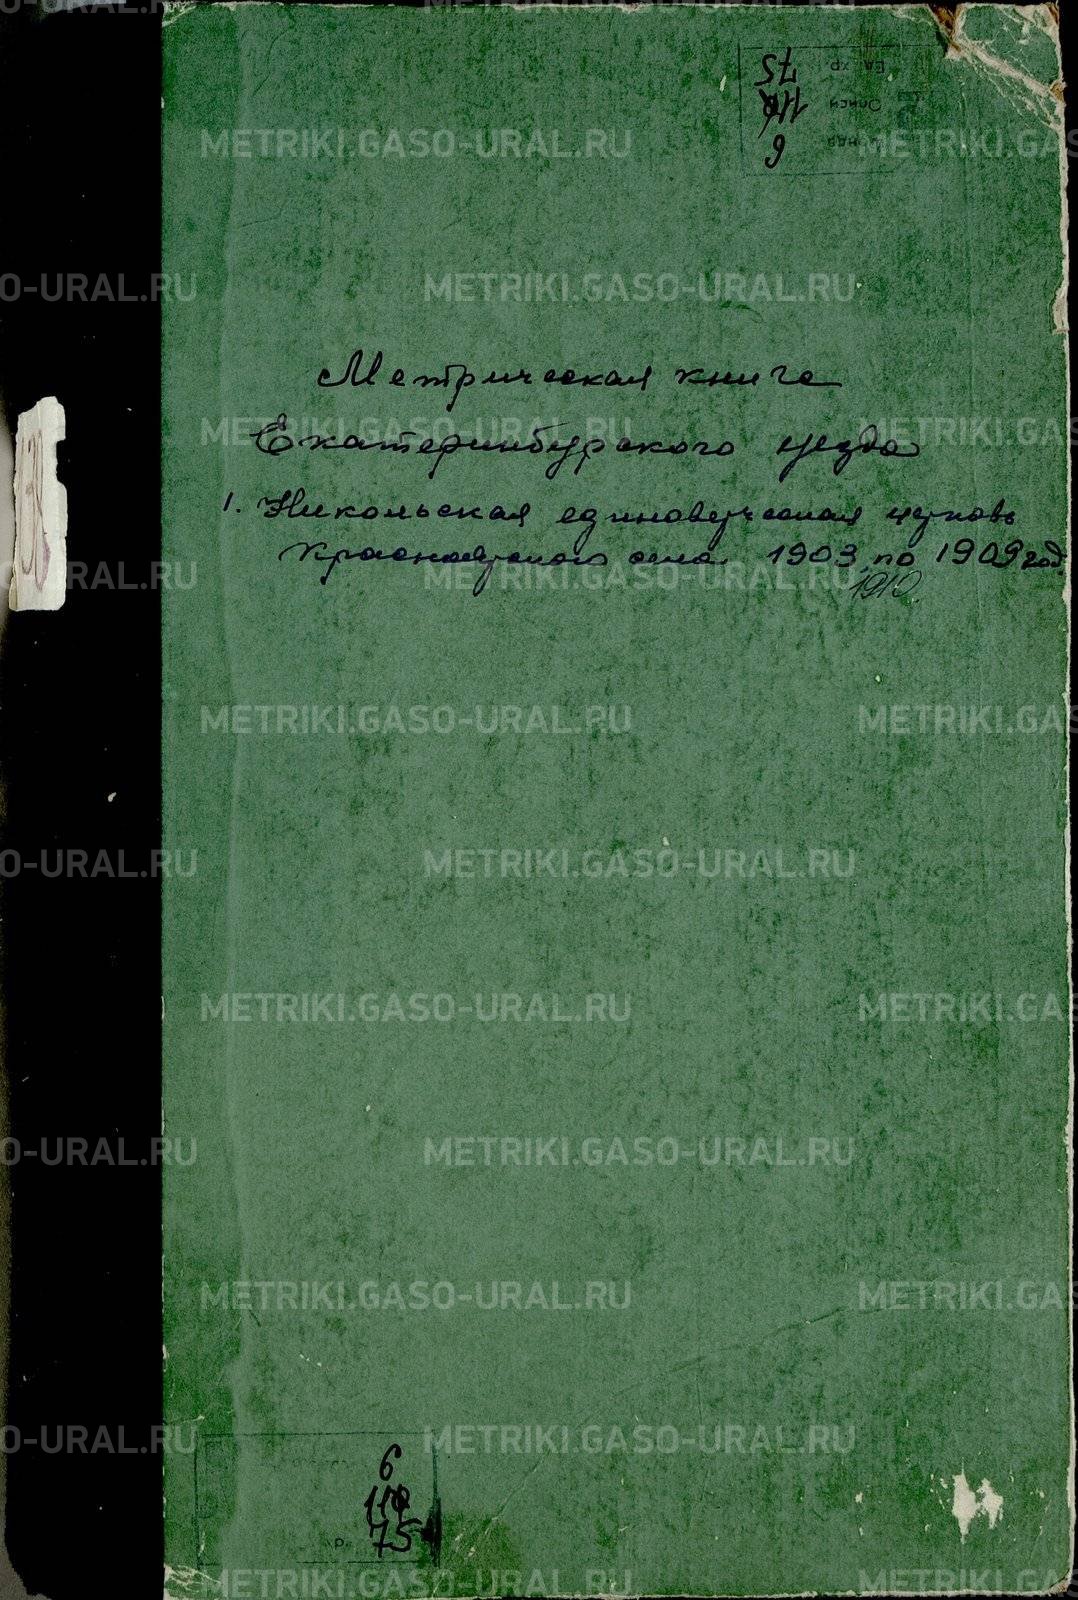 75
Ед. хр.
Описи
6
Метрическая книга
Екатеринбургского уезда
1. Никольская единоверческая церковь
Красноярского села 1903 по 1909 год.
1910
6
75
METRIKI.GASO-URAL.RU